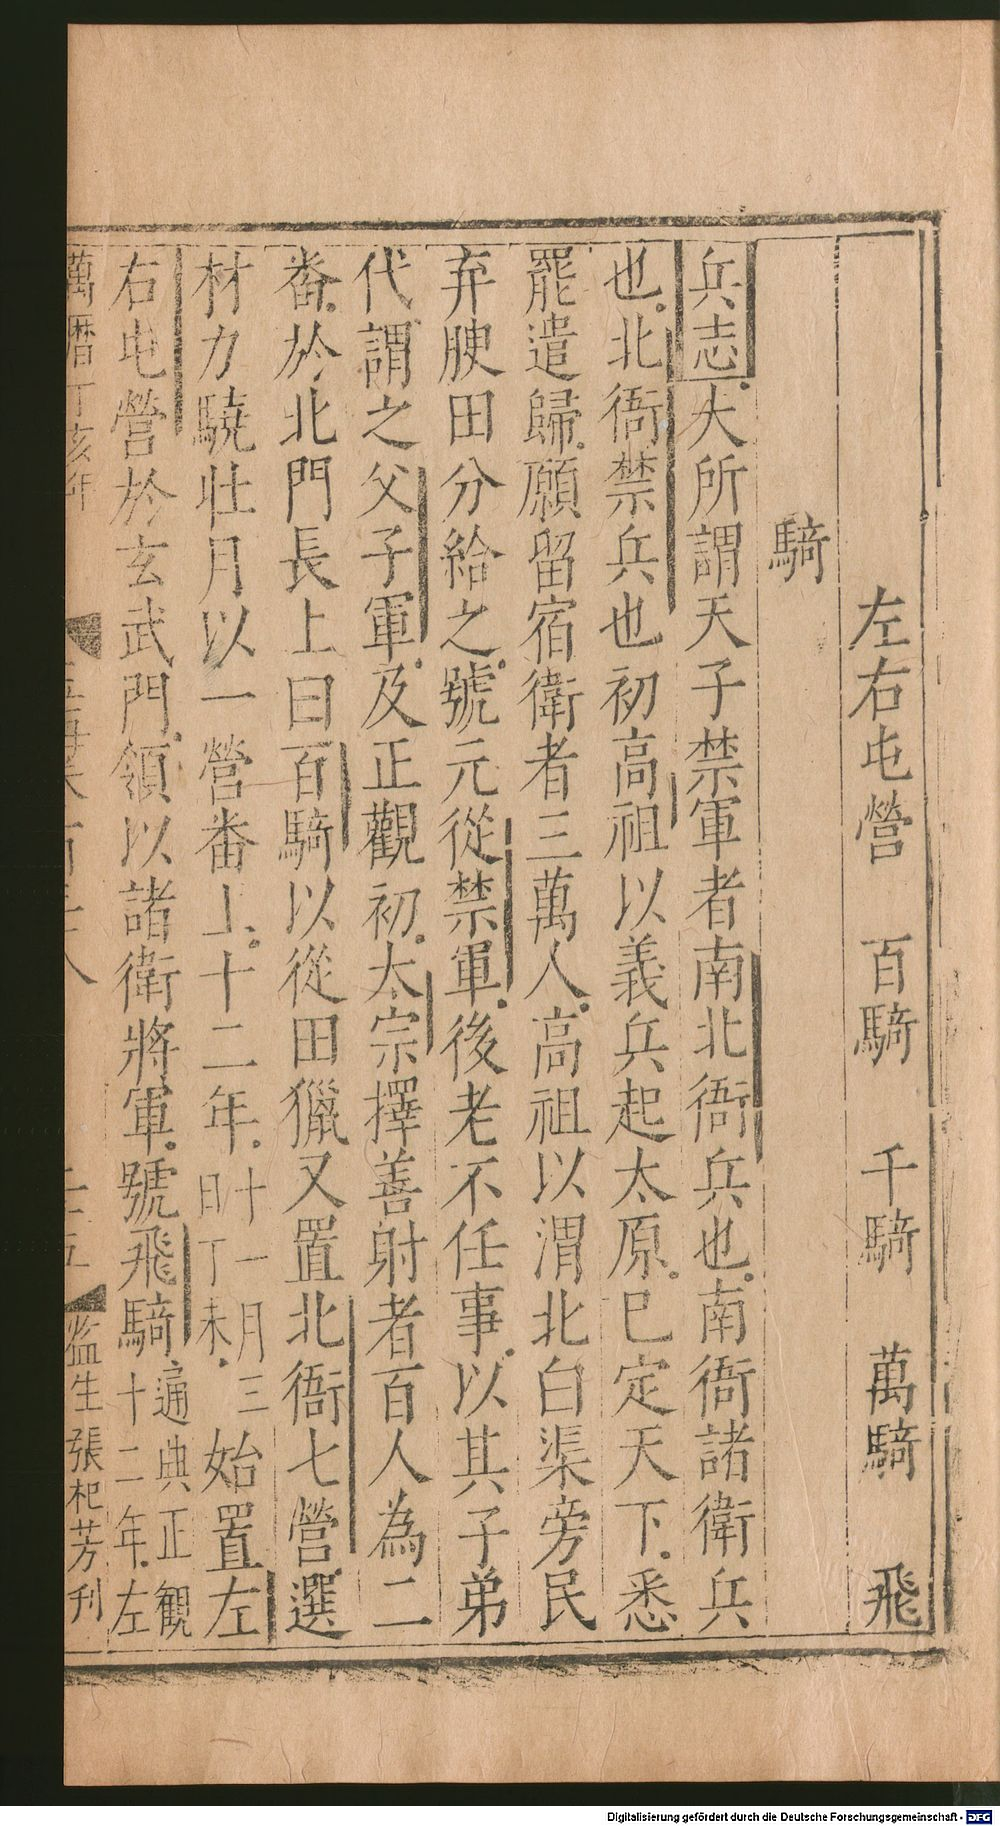 左右屯營　百騎　千騎　萬騎　飛
騎
兵志大所謂天子禁軍者南北衙兵也南衙諸衛兵
也北衙禁兵也初高祖以義兵起太原已定天下悉
罷遣歸願留宿衛者三萬人高祖以渭北白渠旁民
弃腴田分給之號元從禁軍後老不任事以其子弟
代謂之父子軍及正觀初太宗擇善射者百人為二
番於北門長上曰百騎以從田獵又置北衙七營選
材力驍壯月以一營番上十二年十一月三日丁未始置左
右屯營於玄武門領以諸衛將軍號飛騎通典正觀十二年左
萬曆丁亥年
監生張杞芳刋
Digitalisierung gefördert durch die Deutsche Forschungsgemeinschaft - DFG